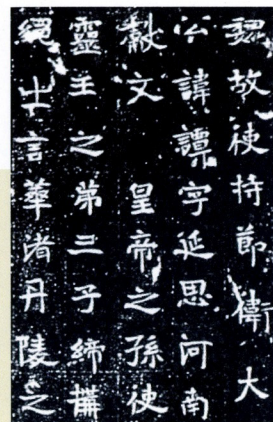 魏故使持節衛大
公諱譚字延思河南
獻文 皇帝之孫使
靈王之第三子締構
繩出言華渚丹陵之